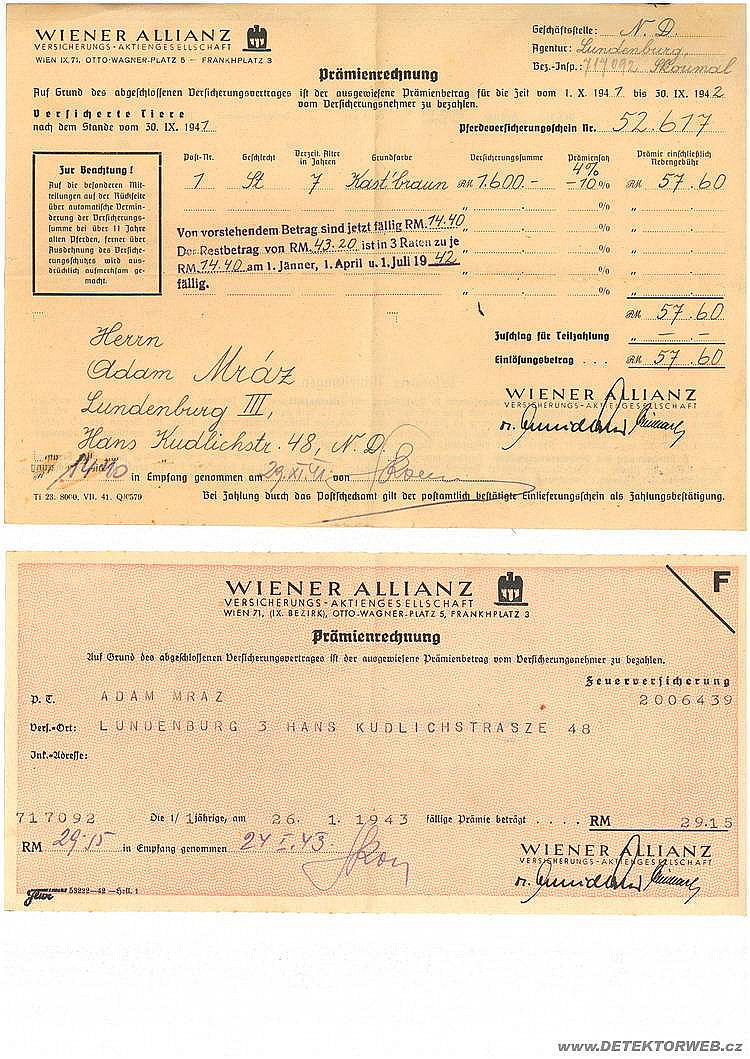 WIENER ALLIANZ
VERSICHERUNGS-AKTIENGESELLSCHAFT
WIEN IX, 71, OTTO-WAGNER-PLATZ 5 — FRANKHPLATZ 3
Geschäftsstelle: N. D.
Agentur: Lundenburg,
Bez.-Insp.: 717092 Skoumal
Prämienrechnung
Auf Grund des abgeschlossenen Versicherungsvertrages ist der ausgewiesene Prämienbetrag für die Zeit vom 1. X. 1941 bis 30. IX. 1942
vom Versicherungsnehmer zu bezahlen.
Versicherte Tiere
nach dem Stande vom 30. IX. 1941
Pferdeversicherungsschein Nr. 52.617
Zur Beachtung!
Auf die besonderen Mit-
teilungen auf der Rückseite
über automatische Vermin-
derung der Versicherungs-
summe bei über 11 Jahre
alten Pferden, ferner über
Ausdehnung des Versiche-
rungsschutzes wird aus-
drücklich aufmerksam ge-
macht.
Post-Nr. Geschlecht Verzeil. Alter in Jahren Grundfarbe Versicherungssumme Prämiensatz Prämie einschließlich Nebengebühr
4%
1 St 7 Kast'braun RM 1.600.- -10 % RM 57.60
Von vorstehendem Betrag sind jetzt fällig RM. 14.40
Der Restbetrag von RM. 43.20 ist in 3 Raten zu je
RM. 14.40 am 1. Jänner, 1. April u. 1. Juli 1942
fällig.
RM 57.60
Zuschlag für Teilzahlung " — . —
Einlösungsbetrag . . . RM 57.60
Herrn
Adam Mráz
Lundenburg III,
Hans Kudlichstr. 48, N. D.
WIENER ALLIANZ
VERSICHERUNGS-AKTIENGESELLSCHAFT
14.40 in Empfang genommen am 29. XI. 41. von Skou
Ti 23. 8000. VII. 41. Q/0579
Bei Zahlung durch das Postscheckamt gilt der postamtlich bestätigte Einlieferungsschein als Zahlungsbestätigung.
WIENER ALLIANZ
VERSICHERUNGS-AKTIENGESELLSCHAFT
WIEN 71, (IX. BEZIRK), OTTO-WAGNER-PLATZ 5, FRANKHPLATZ 3
F
Prämienrechnung
Auf Grund des abgeschlossenen Versicherungsvertrages ist der ausgewiesene Prämienbetrag vom Versicherungsnehmer zu bezahlen.
Feuerversicherung
P. T. ADAM MRAZ 2006439
Vers.-Ort: LUNDENBURG 3 HANS KUDLICHSTRASZE 48
Ink.-Adresse:
717092 Die 1/1 jährige, am 26. 1. 1943 fällige Prämie beträgt . . . . RM 29.15
RM 29.15 in Empfang genommen 24 I. 43. Skou
WIENER ALLIANZ
VERSICHERUNGS-AKTIENGESELLSCHAFT
53222—42 —Hell. 1
www.DETEKTORWEB.cz